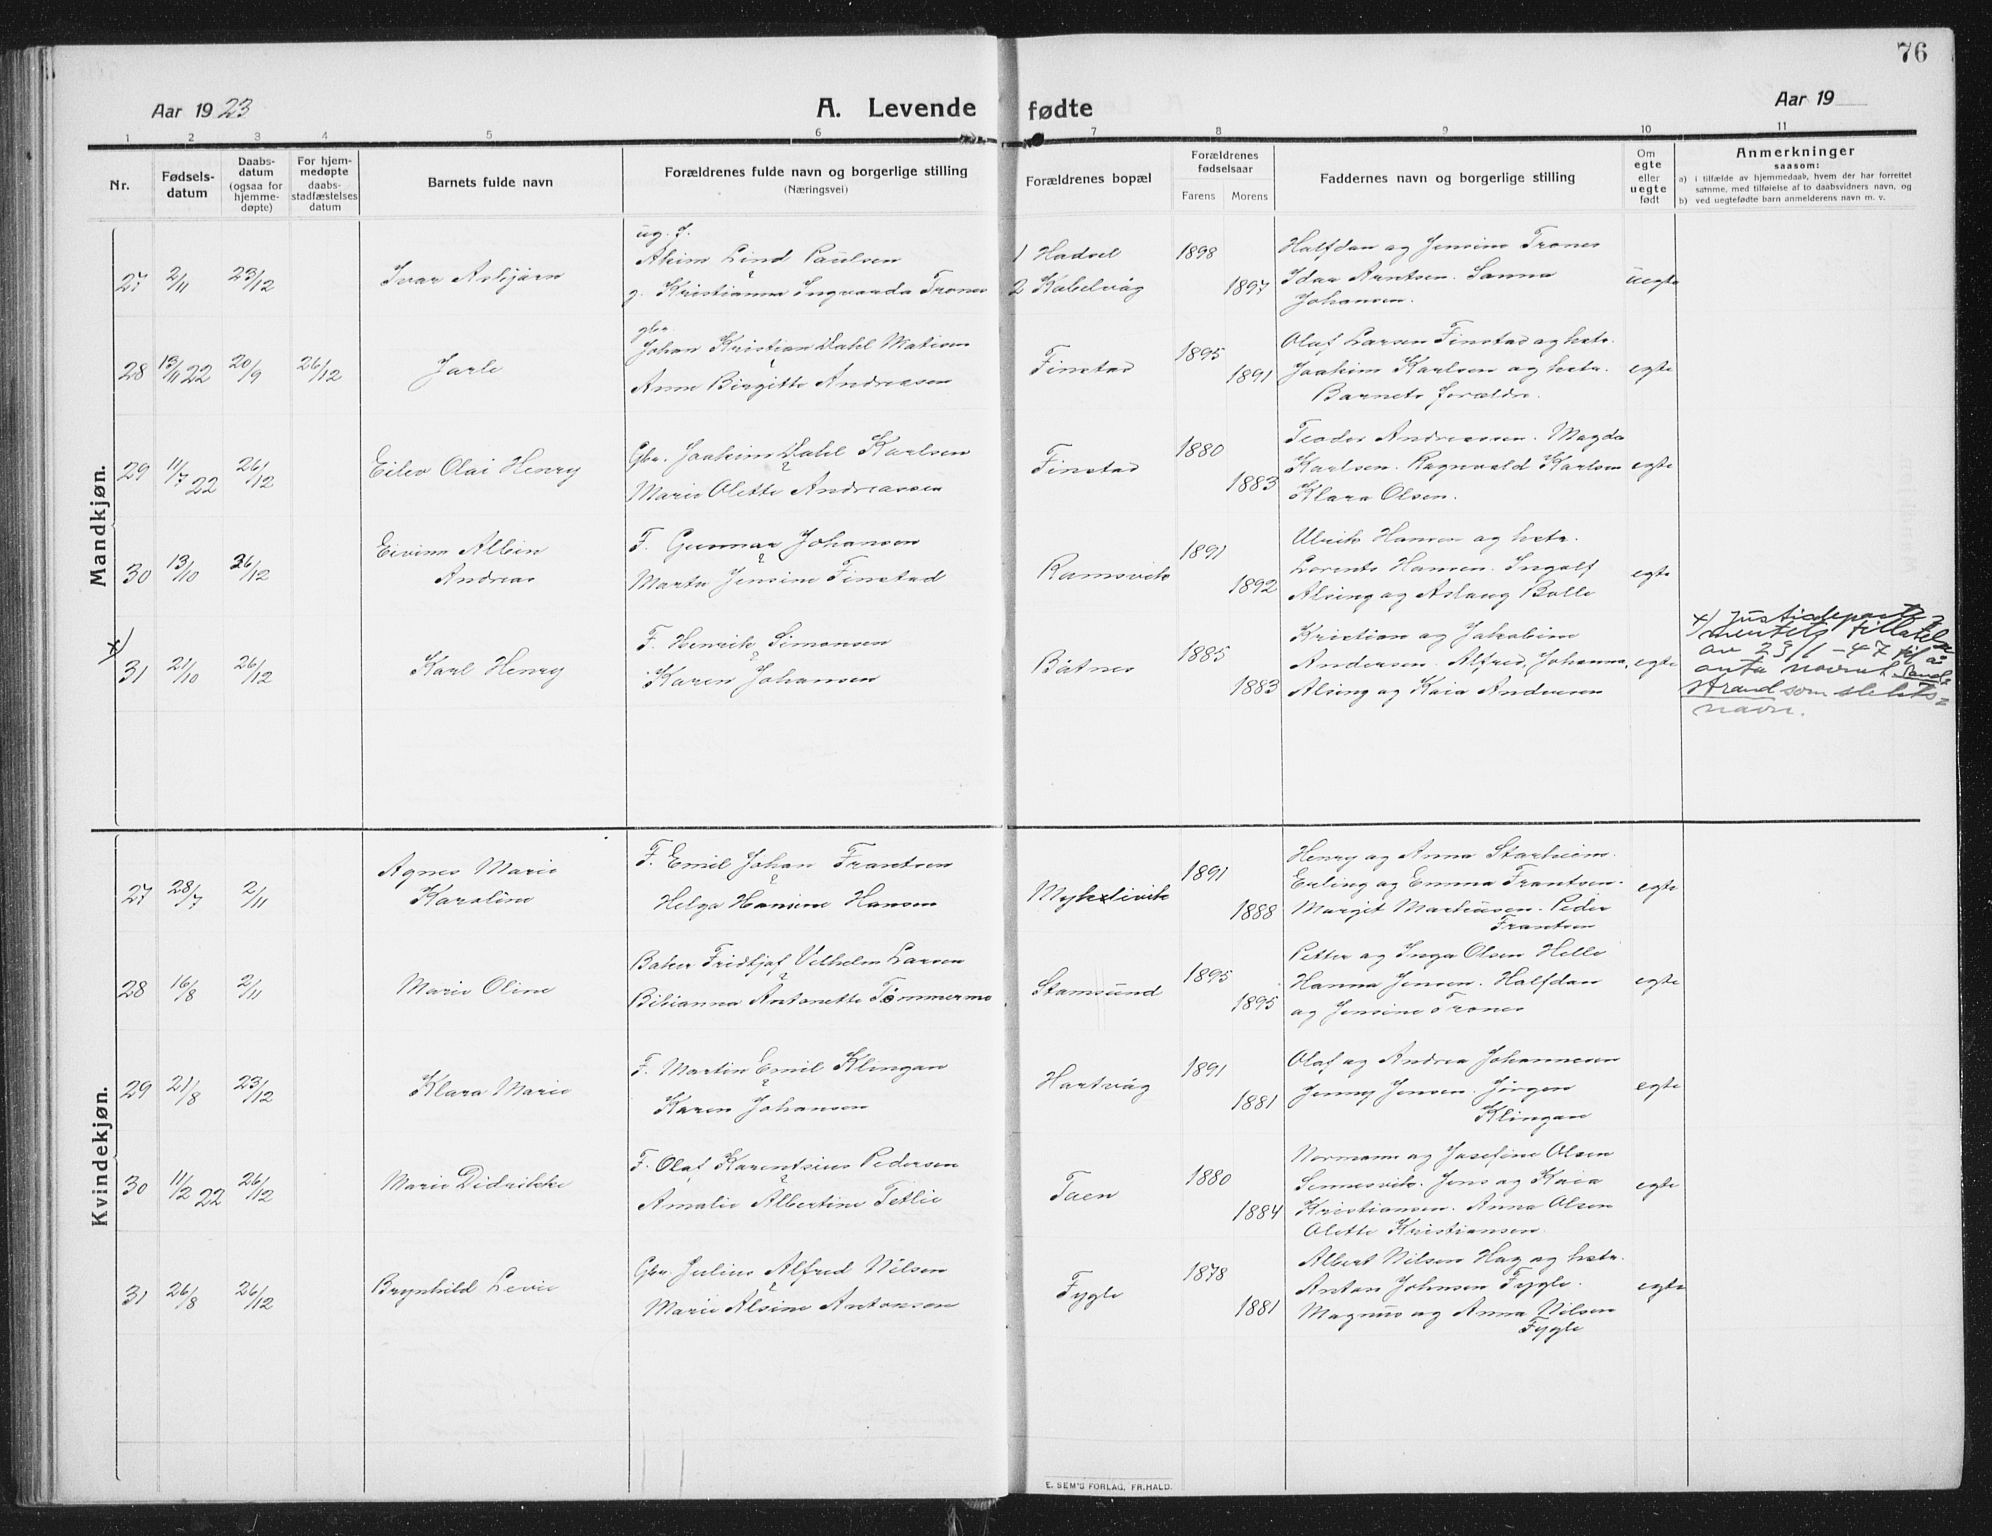 76
Aar 1923
A. Levende fødte
Aar 19
1 2 3 4 5 6 7 8 9 10 11
Nr.
Fødsels-
datum
Daabs-
datum
(ogsaa for
hjemme-
døpte)
For hjem-
medøpte
daabs-
stadfæstelses
datum
Barnets fulde navn
Forældrenes fulde navn og borgerlige stilling
(Næringsvei)
Forældrenes bopæl
Forældrenes
fødselsaar
Farens Morens
Faddernes navn og borgerlige stilling
Om
egte
eller
uegte
født
Anmerkninger
saasom:
a) i tilfælde av hjemmedaab, hvem der har forrettet
samme, med tilføielse af to daabsvidners navn, og
b) ved uegtefødte barn anmelderens navn m. v.
Mandkjøn.
27 2/11 23/12 Ivar Asbjørn
ug. f.
Akim Lind Paulsen
g. Kristianna Ingvarda Trones
1 Hadsel
2 Kabelvåg
1898
1897
Halfdan og Jensine Trones
Idar Arntsen. Sanna
Johansen.
uegte
28 13/11 22 20/9 26/12 Jarle
gbr.
Johan Kristian Dahl Matisen
Anna Birgitte Andreasen
Finstad
1895
1891
Olaf Larsen Finstad og hstr.
Joakim Karlsen og hstr.
Barnets forældre.
egte
29 11/7 22 26/12 Eilev Olai Henry
Gbr. Joakim Dahl Karlsen
Marie Olette Andreassen
Finstad
1880
1883
Teodor Andreassen. Magda
Karlsen. Ragnvald Karlsen
Klara Olsen.
egte
30 13/10 26/12 Eivinn Albin
Andreas
F. Gunnar Johansen
Marta Jensine Finstad
Ramsvik
1891
1892
Ulrik Hansen og hstr.
Lorents Hansen. Ingolf
Alsing og Aslaug Bolle
egte
x)
31 21/10 26/12 Karl Henry
F. Henrik Simonsen
Karen Johansen
Båtnes
1885
1883
Kristian og Jakobine
Andersen. Alfred, Johanna,
Alsing og Kaia Andersen
egte
x) Justisdeparte=
mentets tillatelse
av 23/1 -47 til å
anta navnet Sand=
strand som slekts=
navn.
Kvindekjøn.
27 28/7 2/11 Agnes Marie
Karoline
F. Emil Johan Frantsen
Helga Hansine Hansen
Myklevik
1891
1888
Henry og Anna Starheim.
Erling og Emma Frantsen.
Margit Markussen. Peder
Frantsen
egte
28 16/8 2/11 Marie Oline
Baker Fridtjof Vilhelm Larsen
Bibianna Antonette Tømmermo
Stamsund
1895
1895
Petter og Inga Olsen Helle
Hanna Jensen. Halfdan
og Jensine Trones
egte
29 21/8 23/12 Klara Marie
F. Martin Emil Klingan
Karen Johansen
Hartvåg
1891
1881
Olaf og Andrea Johannesen
Jenny Jensen. Jørgen
Klingan
egte
30 11/2 22 26/12 Marie Didrikke
F. Olaf Karentsius Pedersen
Amalie Albertine Tetlie
Taen
1880
1884
Normann og Josefine Olsen
Sennesvik. Jens og Kaia
Kristiansen. Anna Olsen
Olette Kristiansen.
egte
31 26/8 26/12 Brynhild Levie
Gbr Julius Alfred Nilsen
Marie Alsine Antonsen
Fygle
1878
1881
Albert Nilsen Hag og hstr.
Anton Johnsen Fygle.
Magnus og Anna Nilsen
Fygle
egte
E. SEM'S FORLAG, FR.HALD.